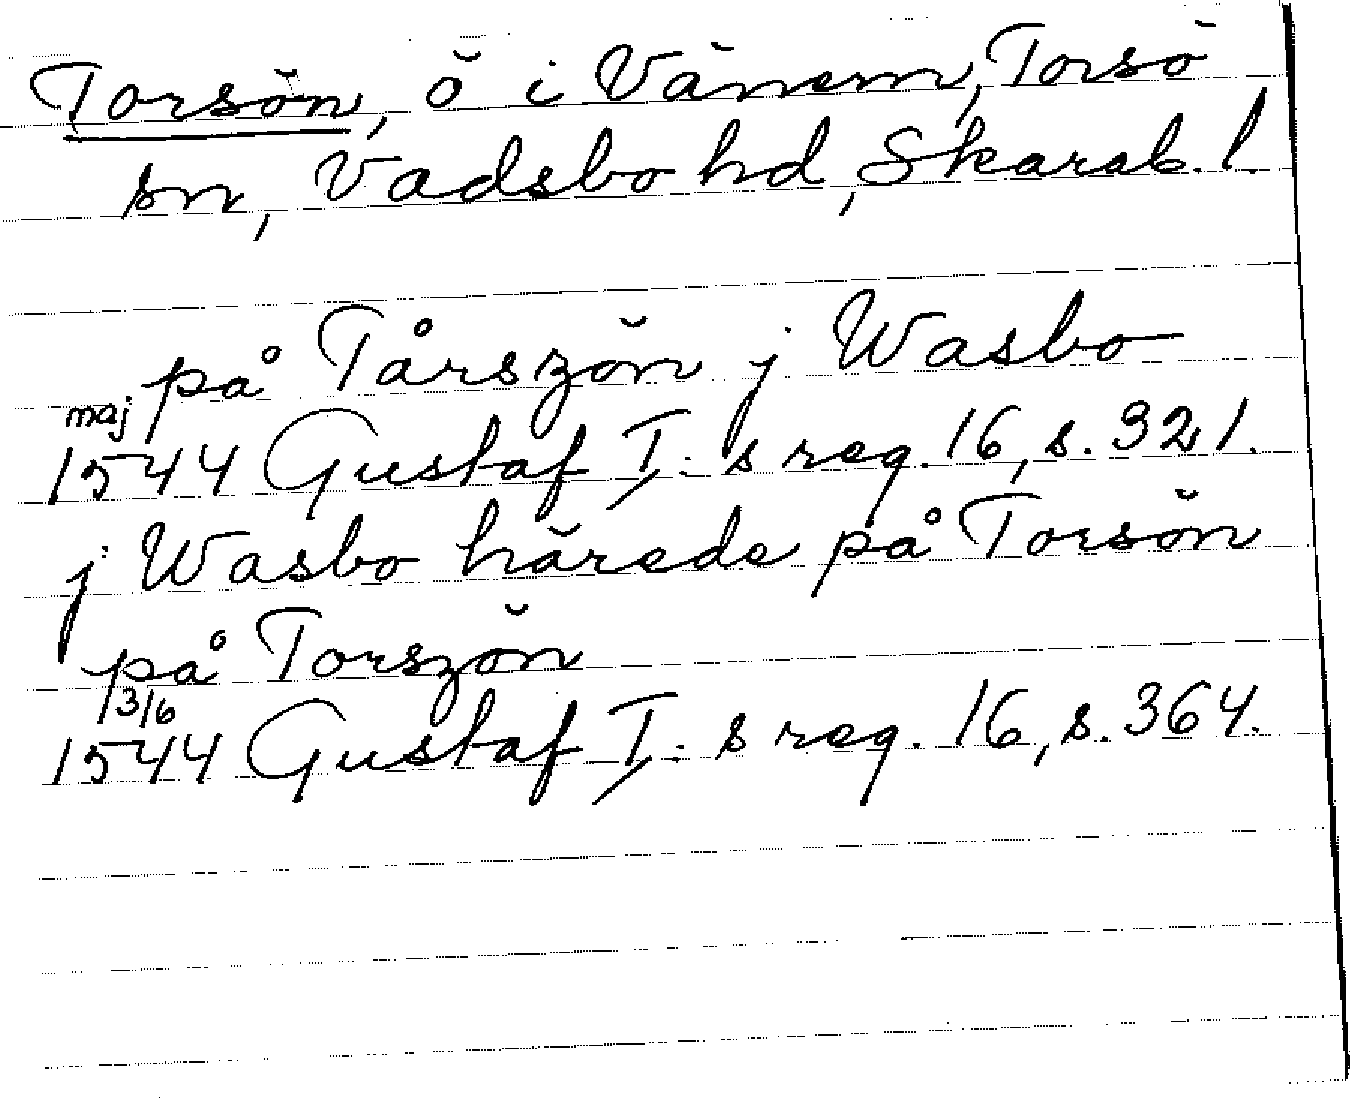 Torsön, ö i Vänern, Torsö
sn, Vadsbo hd, Skarab. l.
på Tårszön j Wasbo
maj
1544 Gustaf I: s reg. 16, s. 321.
j Wasbo härede på Torsön
på Torszön
13/6
1544 Gustaf I: s reg. 16, s. 364.